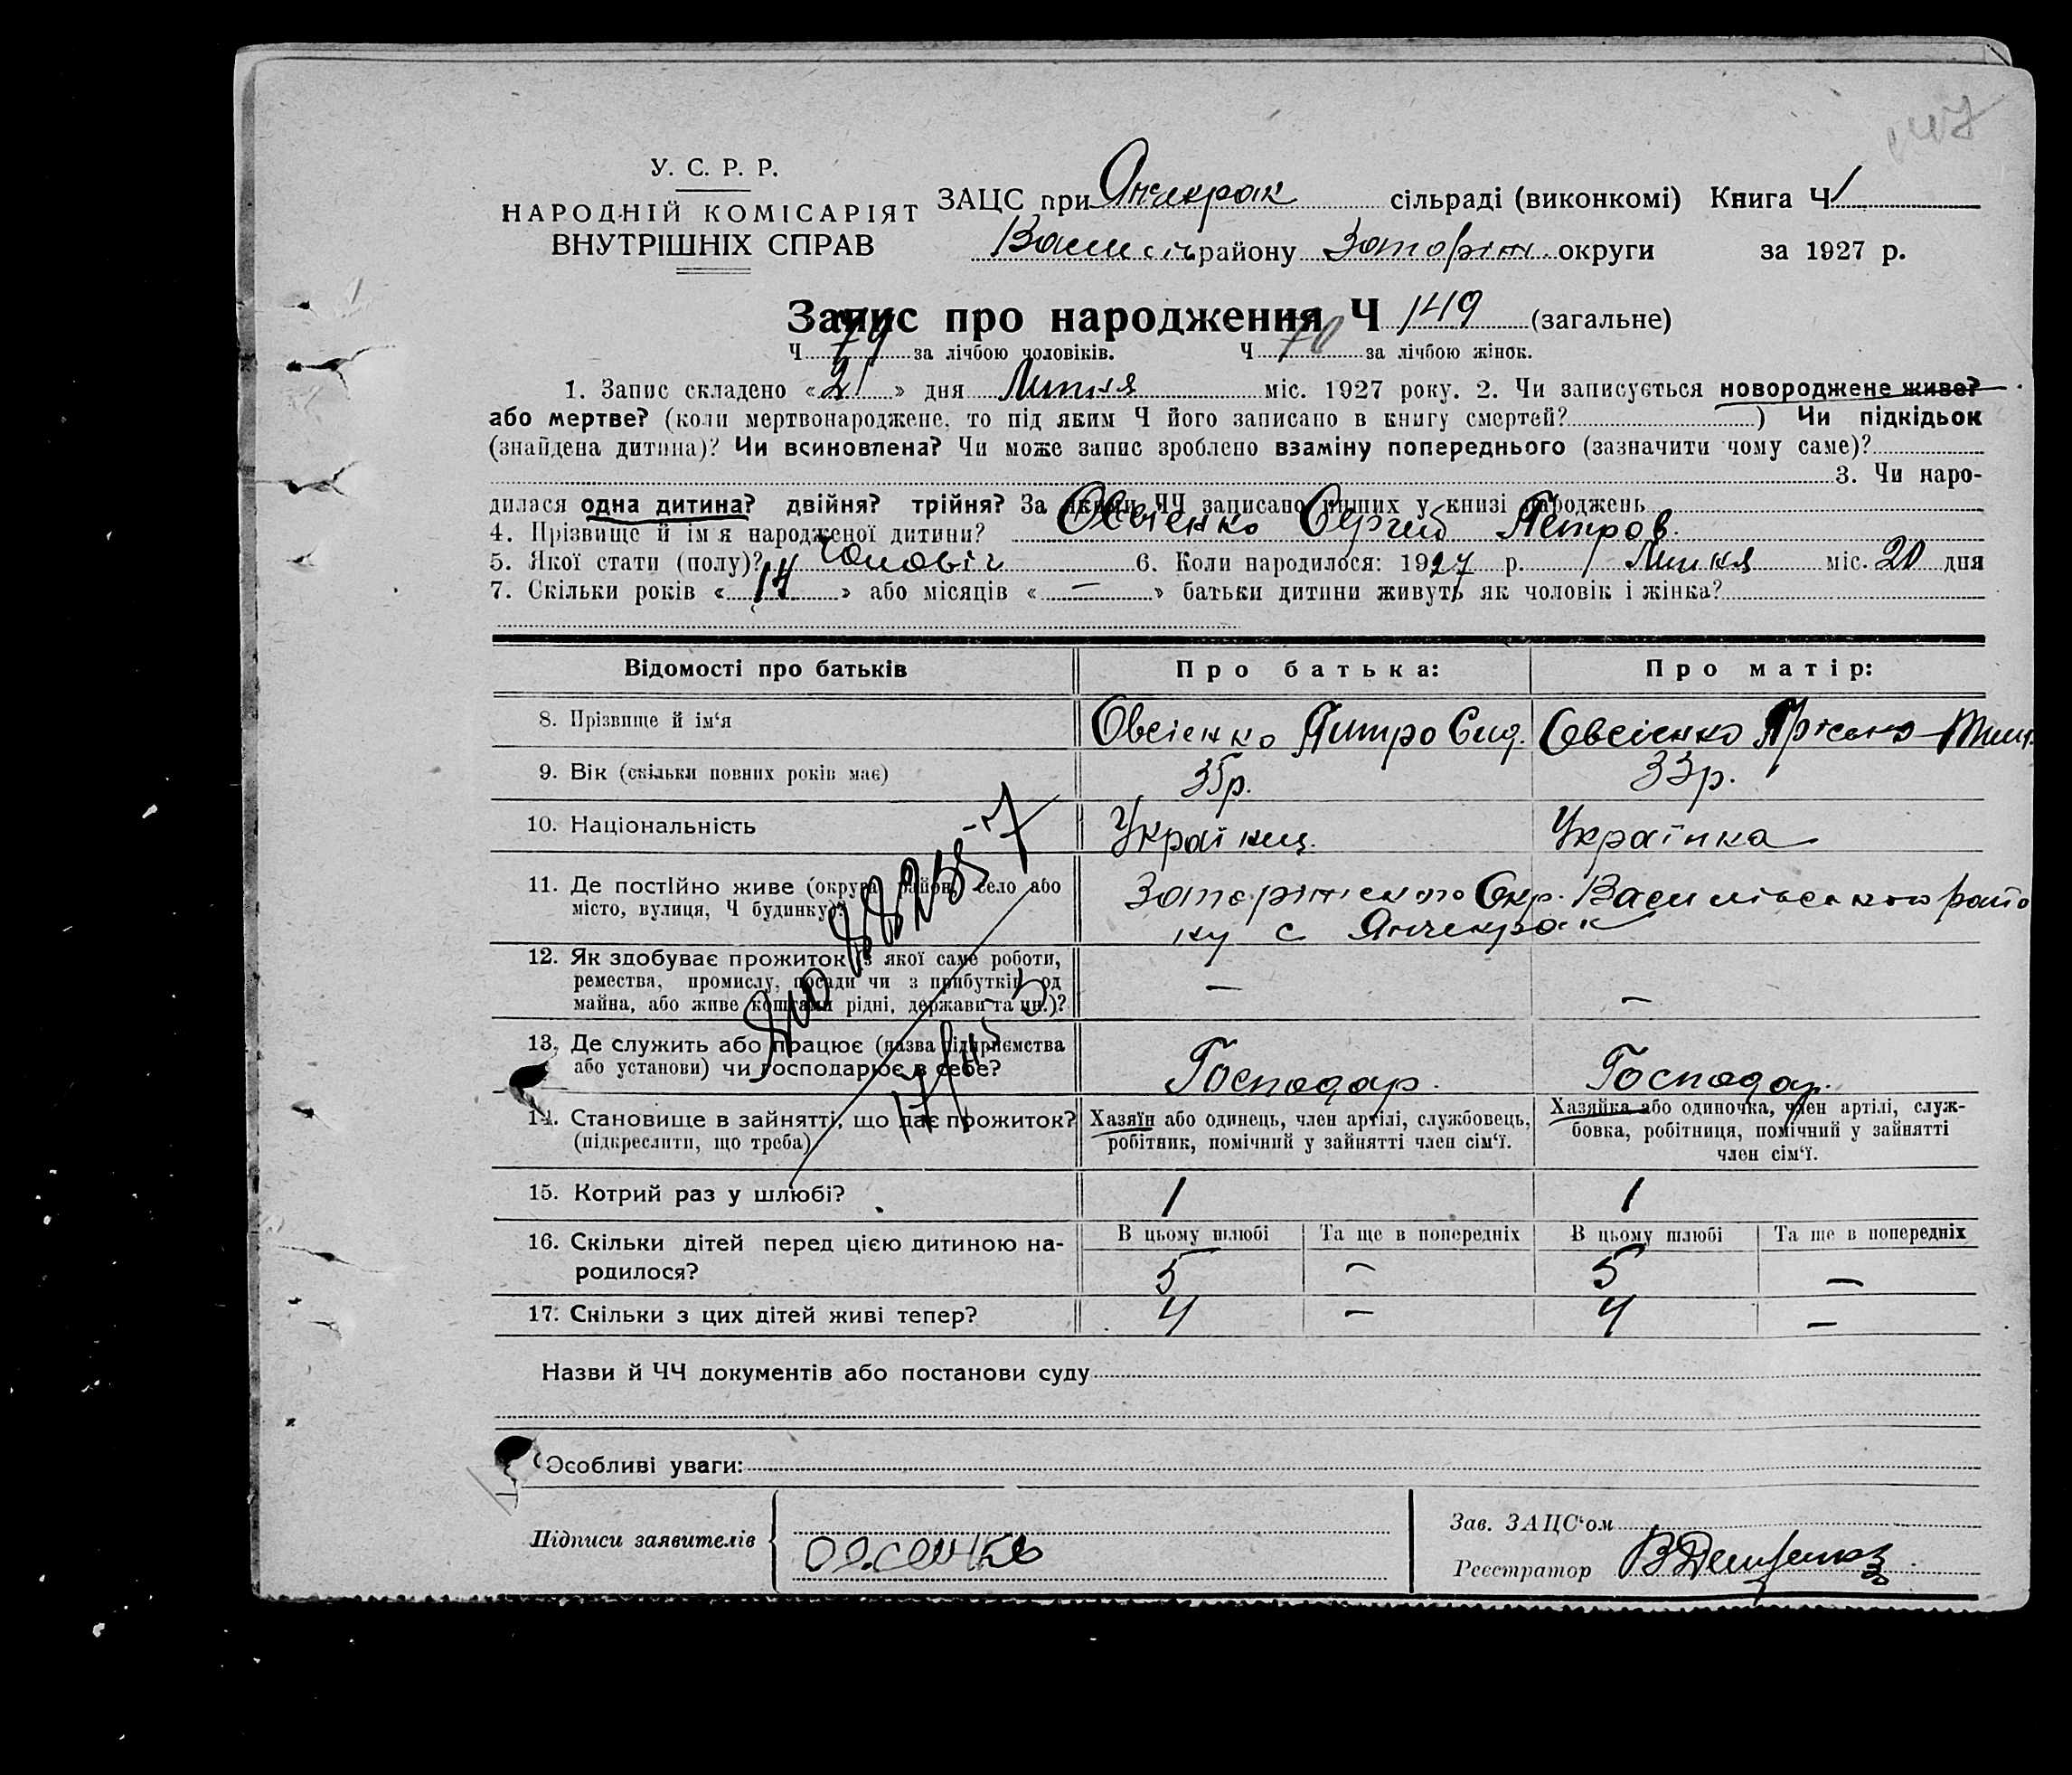 У. С. Р. Р.
НАРОДНІЙ КОМІСАРІЯТ
ВНУТРІШНІХ СПРАВ
ЗАЦС при Янчекрак сільраді (виконкомі) Книга Ч 1
Васил району Запоріж. округи за 1927 р.
Запис про народження Ч 149 (загальне)
Ч 79 за лічбою чоловіків. Ч 70 за лічбою жінок.
1. Запис складено «21» дня Липня міс. 1927 року. 2. Чи записується новороджене живе?
або мертве? (коли мертвонароджене, то під яким Ч його записано в книгу смертей? ) Чи підкідьок
(знайдена дитина)? Чи всиновлена? Чи може запис зроблено взаміну попереднього (зазначити чому саме)?
3. Чи наро-
дилася одна дитина? двійня? трійня? За якими ЧЧ записано инших у книзі народжень
4. Прізвище й ім'я народженої дитини? Овсієнко Сергій Петров.
5. Якої стати (полу)? Чоловіч 6. Коли народилося: 1927 р. Липня міс. 20 дня
7. Скільки років «14» або місяців «—» батьки дитини живуть як чоловік і жінка?
Відомості про батьків Про батька: Про матір:
8. Прізвище й ім'я Овсієнко Питро Сид. Овсієнко Прісько
9. Вік (скільки повних років має) 35р. 33р.
10. Національність Українц. Українка
11. Де постійно живе (округа, район, село або
місто, вулиця, Ч будинку)?
Запоріжского Окр. Василівського райо
ну с Янчекрак
12. Як здобуває прожиток (з якої саме роботи,
ремества, промислу, посади чи з прибутків од
майна, або живе коштами рідні, держави та ин.)? — —
13. Де служить або працює (назва підприємства
або установи) чи господарює в себе? Господар. Господар.
14. Становище в зайнятті, що дає прожиток?
(підкреслити, що треба)
Хазяїн або одинець, член артілі, службовець,
робітник, помічний у зайнятті член сім'ї.
Хазяйка або одиночка, член артілі, служ-
бовка, робітниця, помічний у зайнятті
член сім'ї.
15. Котрий раз у шлюбі? 1 1
16. Скільки дітей перед цією дитиною на-
родилося?
В цьому шлюбі Та ще в попередніх В цьому шлюбі Та ще в попередніх
5 — 5 —
17. Скільки з цих дітей живі тепер? 4 — 4 —
Назви й ЧЧ документів або постанови суду
Особливі уваги:
Підписи заявителів
Зав. ЗАЦС'ом
Реєстратор